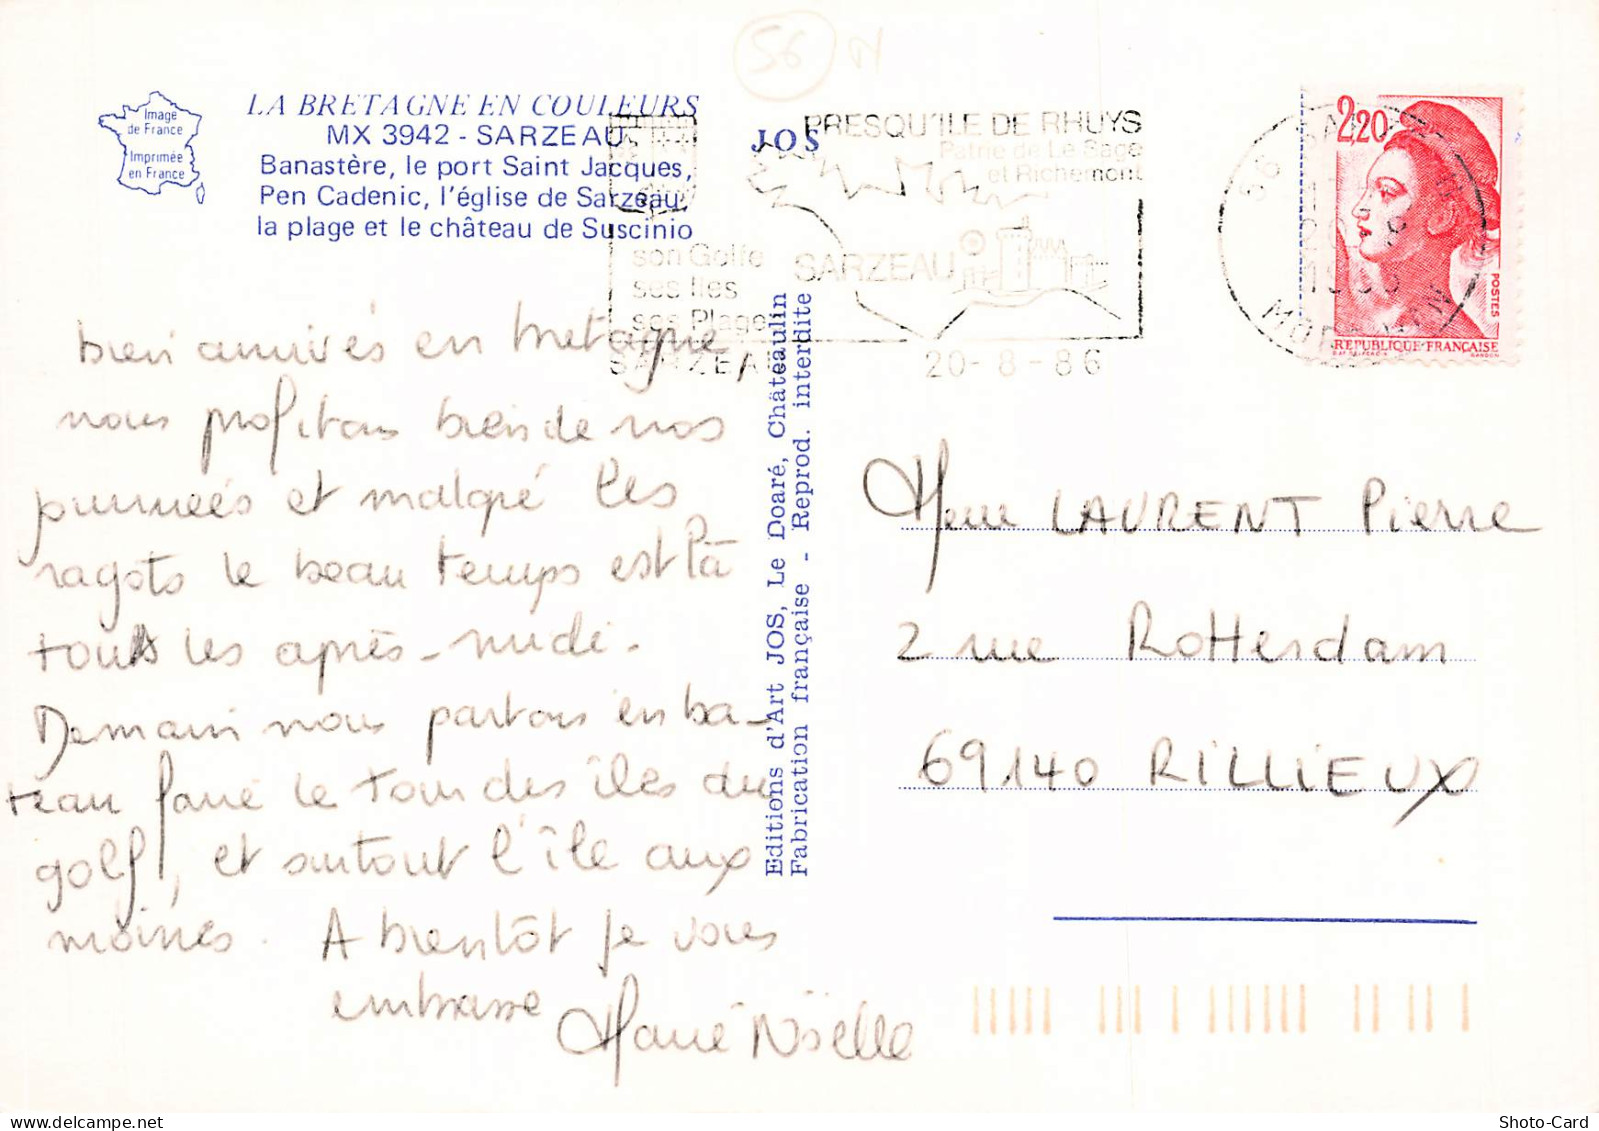 56
Image
de France
Imprimée
en France
LA BRETAGNE EN COULEURS
MX 3942 - SARZEAU
Banastère, le port Saint Jacques,
Pen Cadenic, l'église de Sarzeau,
la plage et le château de Suscinio
JOS
PRESQU'ILE DE RHUYS
Patrie de Le Sage
et Richemont
son Golfe
ses Iles
ses Plages
SARZEAU
SARZEAU
20-8-86
56 SARZEAU
MORBIHAN
2,20
POSTES
REPUBLIQUE FRANÇAISE
bien arrivés en bretagne
nous profitons bien de nos
journées et malgré les
ragots le beau temps est là
tous les après-midi.
Demain nous partons en ba-
teau faire le tour des îles du
golf, et surtout l'île aux
moines. A bientôt je vous
embrasse
Marie Noëlle
Editions d'Art JOS, Le Doaré, Châteaulin
Fabrication française - Reprod. interdite
Mme LAURENT Pierre
2 rue Rotterdam
69140 RILLIEUX
Shoto-Card